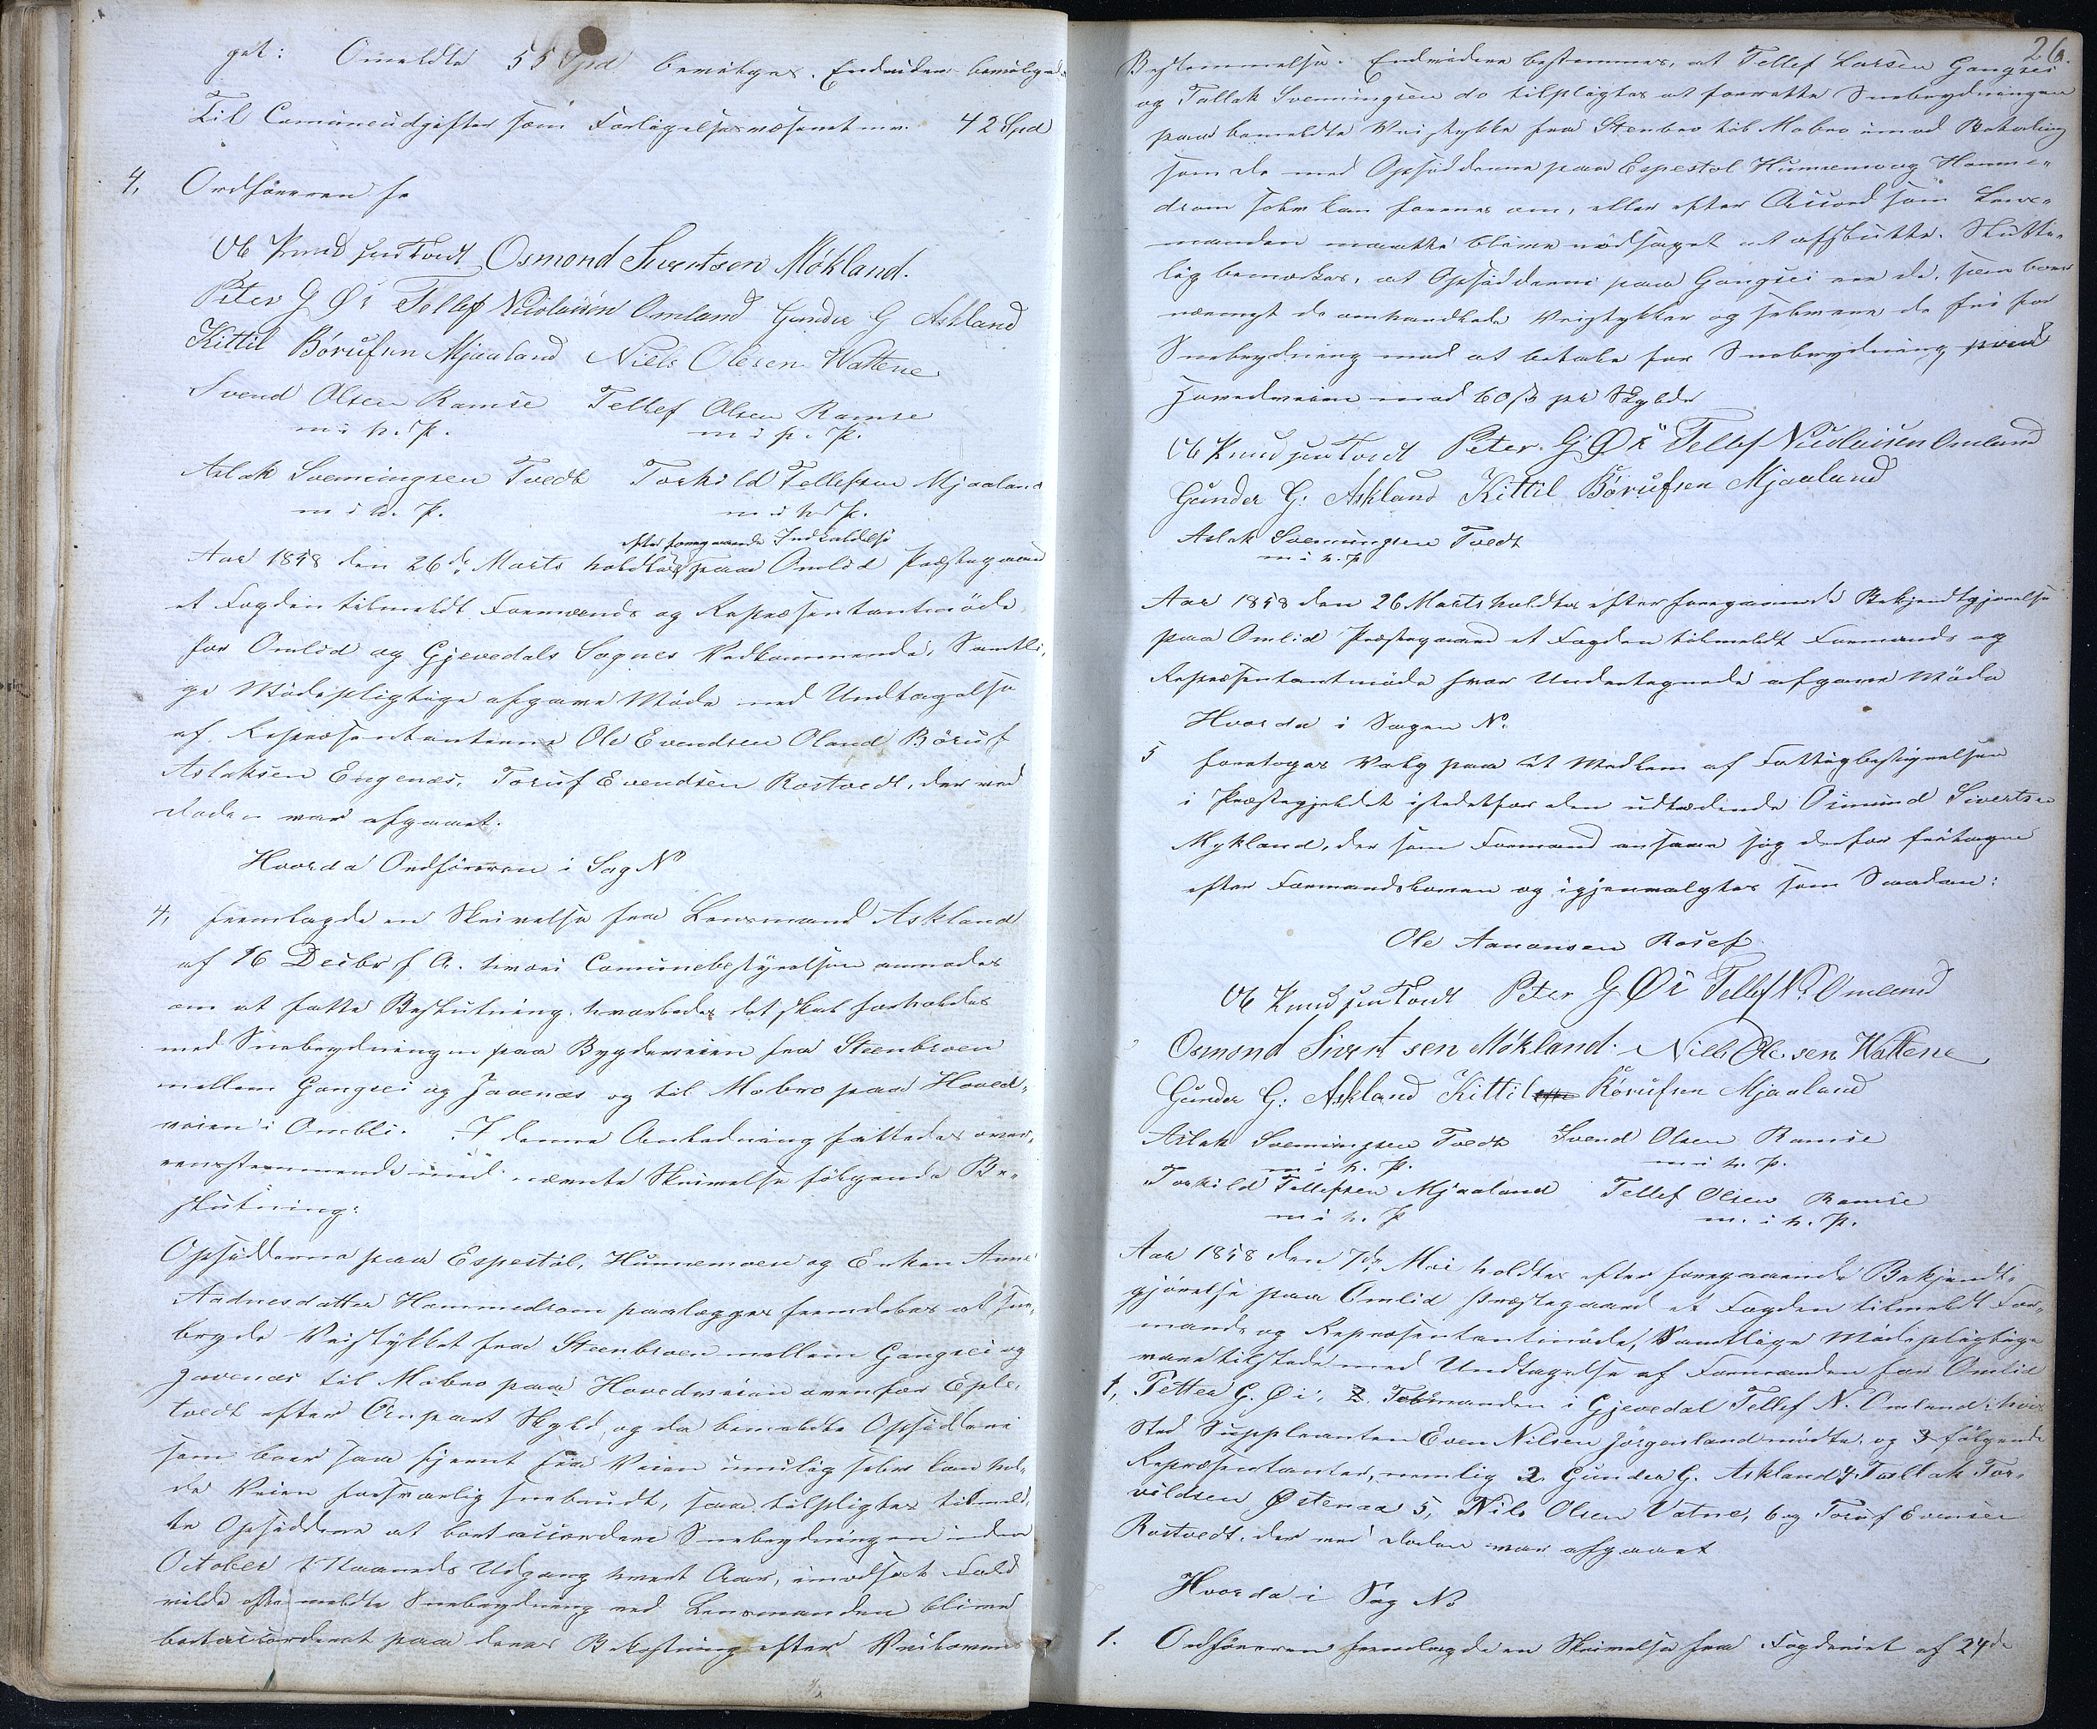 get: Omeldte 55 Spd bevilges. Endvidere bevilgedes
Til Comuneudgifter som Forligelsesvæsenet mv. 42 Spd
4, Ordföreren fr
Ole Knudsen Tvedt Osmond Sivertsen Møkland.
Peter G Øi Tellef Nicolaisen Omland Gunder G Askland
Kittil Börufsen Mjaaland Niels Olesen Wattene
Svend Olsen Ramse Tellef Olsen Ramse
m. i h. P. m i p. P.
Aslak Svenningsen Tvedt Torkild Tellefsen Mjaaland
m i h. P. m i h. P.
efter foregaaende Indkaldelse
Aar 1858 den 26de Marts holdtes paa Omlid Præstegaard
et Fogden tilmeldt Formands og Repræsentantmöde
for Omlid og Gjevedals Sognes Vedkommende. Samtli,
ge Mödepligtige afgave Möde med Undtagelse
af Repræsentanterne Ole Evendsen Oland, Böruf
Aslaksen Engenæs, Toruf Evendsen Rostvedt, der ved
Döden var afgaaet.
Hvorda Ordföreren i Sag No
4, fremlagde en Skrivelse fra Lensmand Askland
af 16 Decbr f A. hvori Comunebestyrelsen anmodes
om at fatte Beslutning, hvorledes det skal forholdes
med Snebrydningen paa Bygdeveien fra Steenbroen
mellem Gangsei og Jovenæs og til Mobro paa Hoved-
veien i Omlie. I denne Anledning fattedes over,
eensstemmende med nævnte Skrivelse fölgende Be-
slutning:
Opsidderne paa Espestöl, Hunnemoen og Enken Anne
Aadnesdatter Hommedrom paalægges fremdeles at sne,
bryde Veistykket fra Steenbroen mellem Gangsei og
Jovenæs til Mobro paa Hovedveien ovenfor Eple,
tvedt efter Anpart Skyld, og da bemeldte Opsiddere
som boer saa fjernt fra Veien umulig selv kan hol,
de Veien forsvarlig snebrudt, saa tilpligtes bemeld,
te Opsiddere at bortaccordere Snebrydningen inden
October Maaneds Udgang hvert Aar, i modsat Fald
vilde ommeldte Snebrydning ved Lensmanden blive
bortaccorderet paa deres Bekostning efter Veilovens
26.
Bestemmelse. Endvidere bestemmes, at Tellef Larsen Gangsei
og Tallak Svenningsen do tilpligtes at forrette Snebrydningen
paa bemeldte Veistykke fra Stenbro til Mobro imod Betaling
som de med Opsidderne paa Espestöl Hunnemo og Homme-
drom selv kan forenes om, eller efter Accord som Lens-
manden maatte blive nödsaget at afslutte. Slutte-
lig bemærkes, at Opsidderne paa Gangsei ere de, som boer
nærmest de omhandlede Veistykker og selv ere de fri for
Snebrydning mod at betale for Snebrydning paa
Hovedveien med 60 ß pr Skylddr
Ole Knudsen Tvedt Peter G Øi Tellef Nicolaisen Omland
Gunder G: Askland Kittil Börufsen Mjaaland
Aslak Svenningsen Tvedt
m i h. P
Aar 1858 den 26 Marts holdtes efter foregaaende Bekjendtgjørelse
paa Omlid Præstegaard et Fogden tilmeldt Formands og
Repræsentantmöde hvor Undertegnede afgave Möde
Hvorda i Sagen No.
5 foretoges Valg paa et Medlem af Fattigbestyrelsen
i Præstegjeldet istedetfor den udtrædende Osmund Sivertsen
Mykland, der som Formand ansaae sig derfor fritagen
efter Formandsloven og igjenvalgtes som Saadan:
Ole Aanonsen Roief
Ole Knudsen Tvedt Peter G Øi Tellef N. Omland
Osmond Sivertsen Møkland. Niels Olesen Wattene
Gunder G: Askland Kittil Börufsen Mjaaland
Aslak Svenningsen Tvedt Svend Olsen Ramse
m i h. P. m i h. P.
Torkild Tellefsen Mjaaland Tellef Olsen Ramse
m i h. P m. i h. P.
Aar 1858 den 7de Mai holdtes efter foregaaende Bekjendt-
gjörelse paa Omlid Præstegaard et Fogden tilmeldt For-
mands og Repræsentantmöde, Samtlige Mödepligtige
vare tilstede med Undtagelse af Formanden for Omlid
1, Petter G. Øi, 2. Formanden i Gjevedal Tellef N. Omland i hvis
Sted Suppleanten Even Nilsen Jörgenland mödte, og 3 fölgende
Repræsentanter, nemlig 3. Gunder G. Askland 4. Tallak Tor-
vildsen Østenaa 5, Nils Olsen Vatne, 6 og Toruf Evensen
Rostvedt, der ved Döden var afgaaet
Hvorda i Sag No
1. Ordföreren fremlagde en Skrivelse fra Fogderiet af 24de